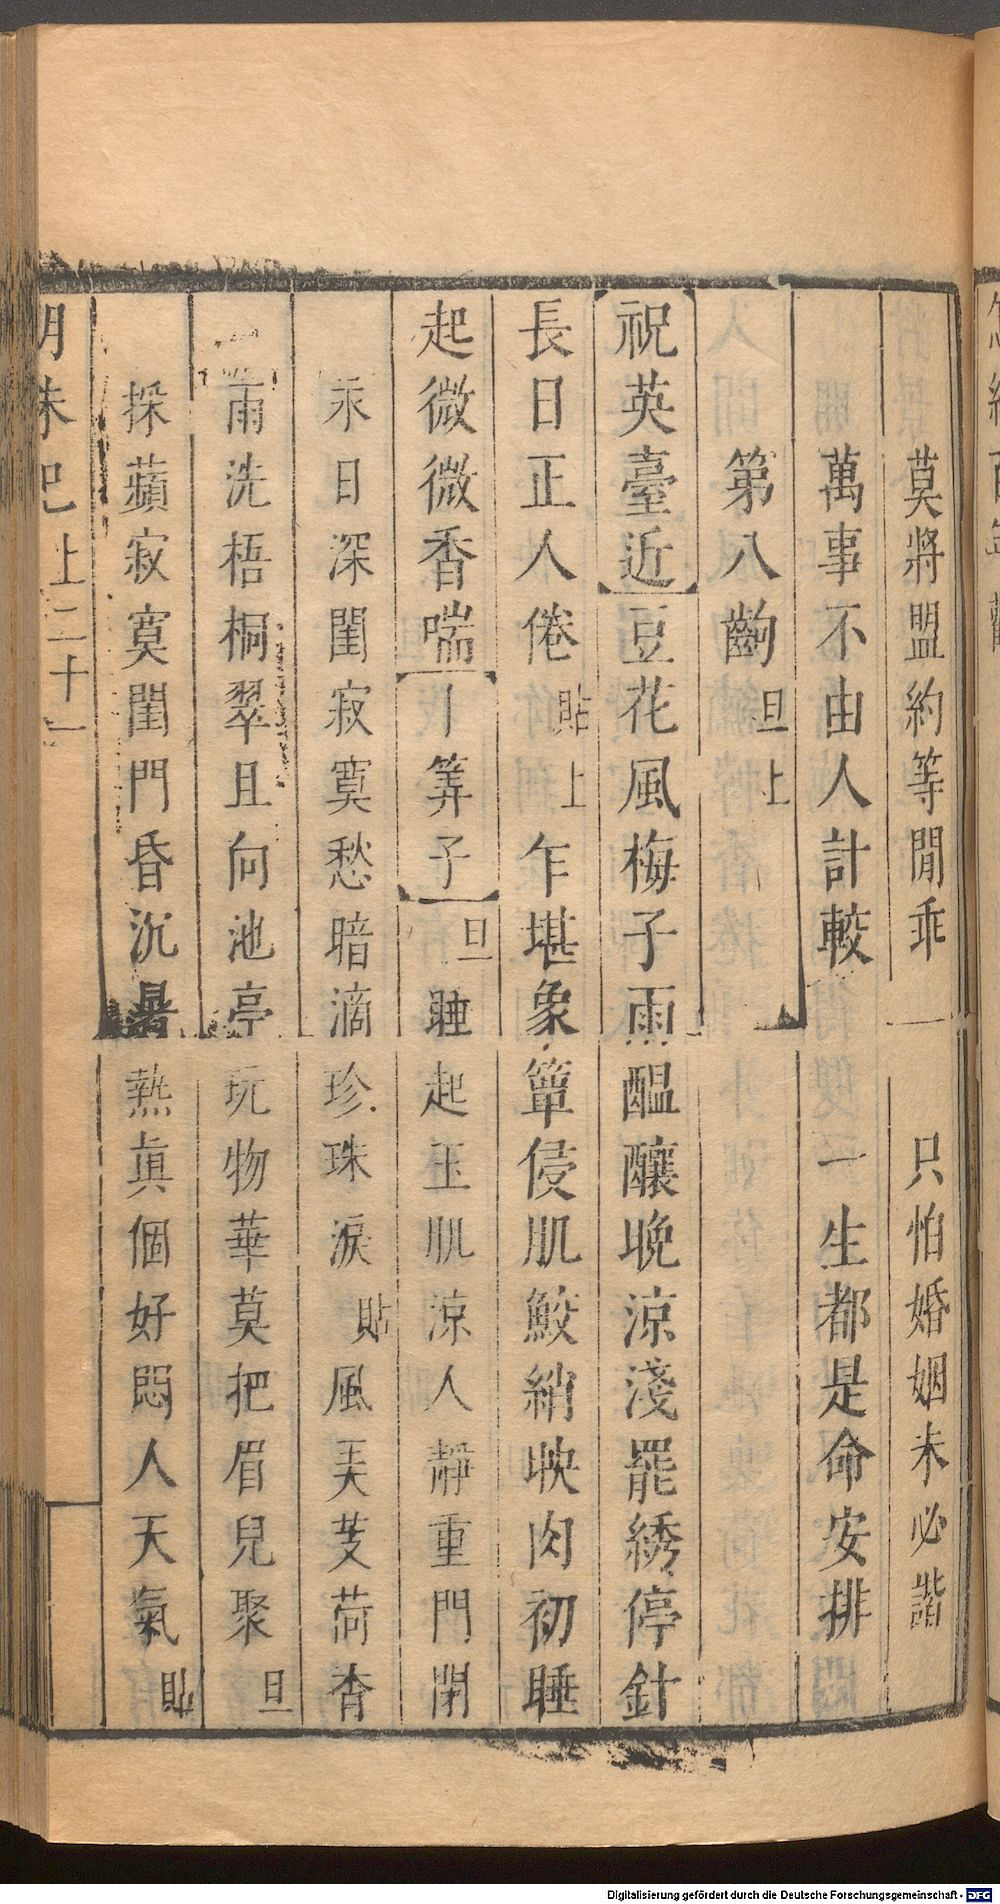 莫將盟約等閒乖　只怕婚姻未必諧
萬事不由人計較　一生都是命安排
第八齣旦上
祝英臺近豆花風梅子雨醞釀晚涼淺罷綉停針
長日正人倦貼上乍堪象簟侵肌鮫綃映肉初睡
起微微香喘丨筭子旦睡起玉肌涼人靜重門閉
永日深閨寂寞愁暗滴珍珠淚貼風芰荷香
雨洗梧桐翠且向池亭玩物華莫把眉兒聚旦
採蘋寂寞閨門昏沉暑熱真個好悶人天氣貼
明珠記上二十一
Digitalisierung gefördert durch die Deutsche Forschungsgemeinschaft - DFG